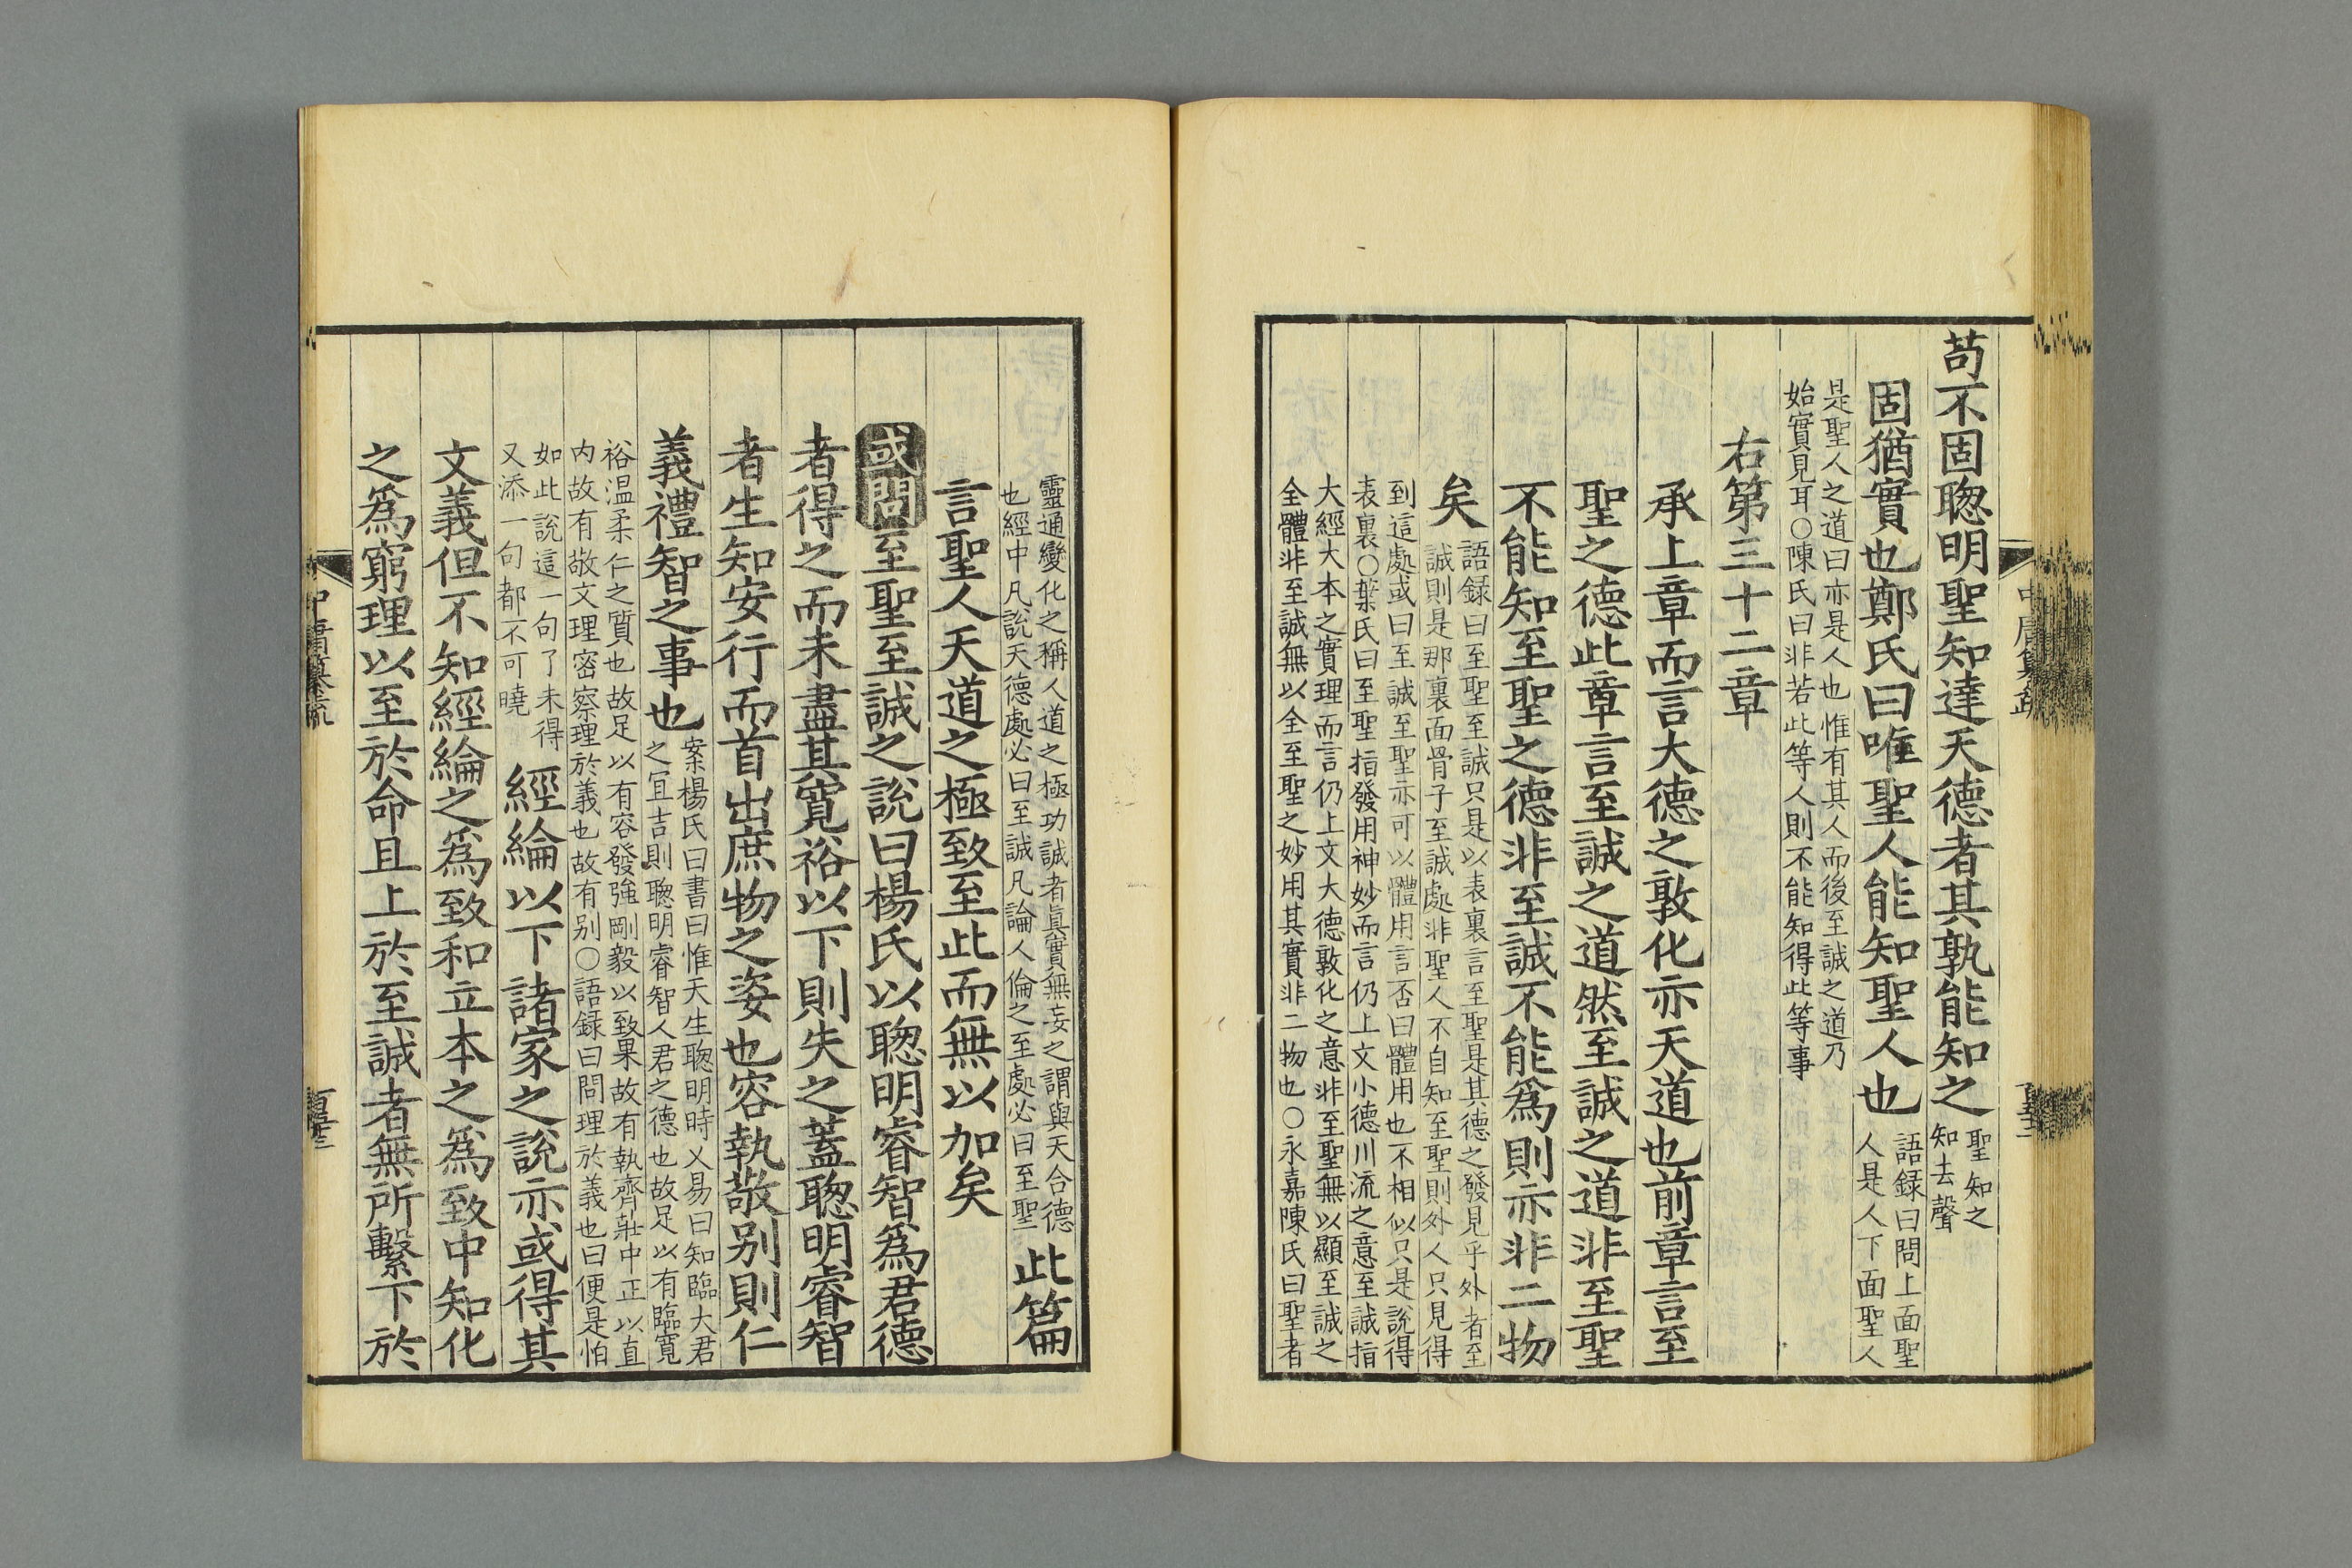 苟不固聰明聖知達天德者其孰能知之聖知之
知去聲
固猶實也鄭氏曰唯聖人能知聖人也語録曰問上面聖
人是人下面聖人
是聖人之道曰亦是人也惟有其人而後至誠之道乃
始實見耳○陳氏曰非若此等人則不能知得此等事
右第三十二章
承上章而言大德之敦化亦天道也前章言至
聖之德此章言至誠之道然至誠之道非至聖
不能知至聖之德非至誠不能爲則亦非二物
矣語録曰至聖至誠只是以表裏言至聖是其德之發見乎外者至
誠則是那裏面骨子至誠處非聖人不自知至聖則外人只見得
到這處或曰至誠至聖亦可以體用言否曰體用也不相似只是說得
表裏○葉氏曰至聖指發用神妙而言仍上文小德川流之意至誠指
大經大本之實理而言仍上文大德敦化之意非至聖無以顯至誠之
全體非至誠無以全至聖之妙用其實非二物也○永嘉陳氏曰聖者
靈通變化之稱人道之極功誠者眞實無妄之謂與天合德
也經中凡說天德處必曰至誠凡論人倫之至處必曰至聖此篇
言聖人天道之極致至此而無以加矣
或問至聖至誠之說曰楊氏以聰明睿智爲君德
者得之而未盡其寬裕以下則失之蓋聰明睿智
者生知安行而首出庶物之姿也容執敬别則仁
義禮智之事也案楊氏曰書曰惟天生聰明時乂易曰知臨大君
之冝吉則聰明睿智人君之德也故足以有臨寬
裕温柔仁之質也故足以有容發強剛毅以致果故有執齊莊中正以直
内故有敬文理密察理於義也故有别○語録曰問理於義也曰便是怕
如此說這一句了未得
又添一句都不可曉經綸以下諸家之說亦或得其
文義但不知經綸之爲致和立本之爲致中知化
之爲窮理以至於命且上於至誠者無所繫下於
中庸纂疏